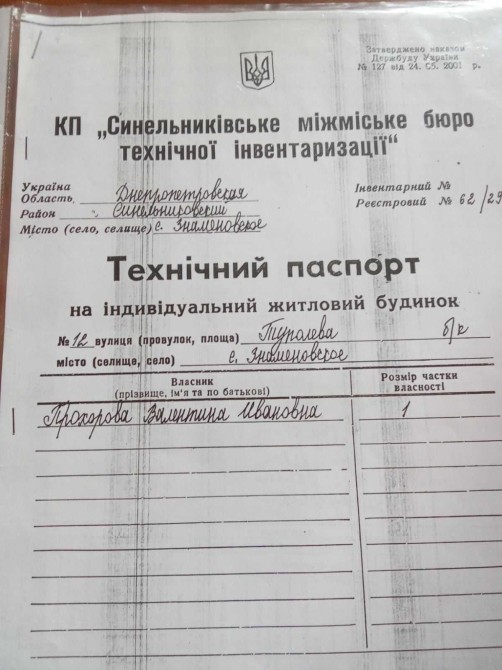 Затверджено наказом
Держбуду України
№ 127 від 24. 05. 2001 р.
КП „Синельниківське міжміське бюро
технічної інвентаризації“
Україна
Область Днепропетровская
Район Синельниковский
Місто (село, селище) с. Знаменовское
Інвентарний №
Реєстровий № 62/29
Технічний паспорт
на індивідуальний житловий будинок
№ 12 вулиця (провулок, площа) Туполева б/к
місто (селище, село) с. Знаменовское
Власник
(прізвище, ім'я та по батькові)
Розмір частки
власності
Прохорова Валентина Ивановна 1